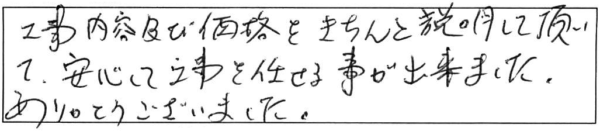 工事内容及び価格をきちんと説明して頂い
て、安心して工事を任せる事が出来ました。
ありがとうございました。